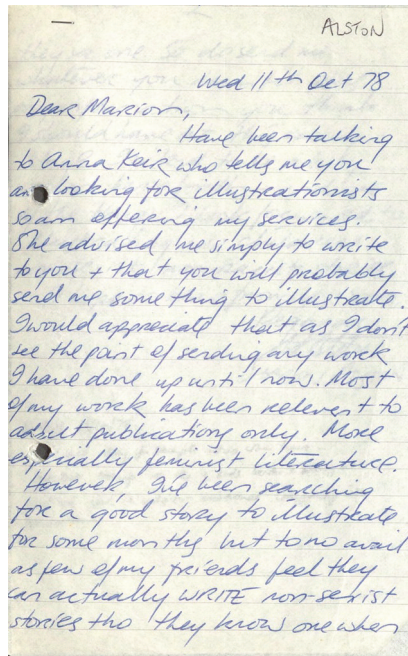 ALSTON
Wed 11th Oct 78
Dear Marion,
Have been talking
to Anna Keir who tells me you
are looking for illustrationists
so am offering my services.
She advised me simply to write
to you + that you will probably
send me something to illustrate.
I would appreciate that as I don't
see the point of sending any work
I have done up until now. Most
of my work has been relevent to
adult publications only. More
especially feminist literature.
However, I've been searching
for a good story to illustrate
for some months but to no avail
as few of my friends feel they
can actually WRITE non-sexist
stories tho they know one when